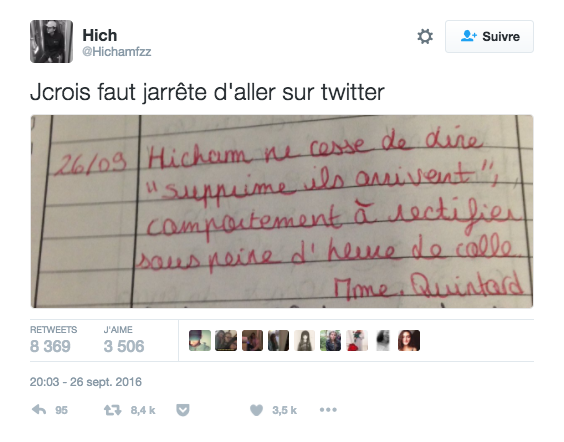 Hich
@Hichamfzz
Suivre
Jcrois faut jarrête d'aller sur twitter
26/09 Hicham ne cesse de dire
"supprime ils arrivent",
comportement à rectifier
sous peine d'heure de colle.
Mme. Quintard
RETWEETS J'AIME
8 369 3 506
20:03 - 26 sept. 2016
95 8,4 k 3,5 k